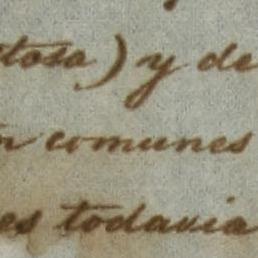 tosa) y de
comunes
es todavia